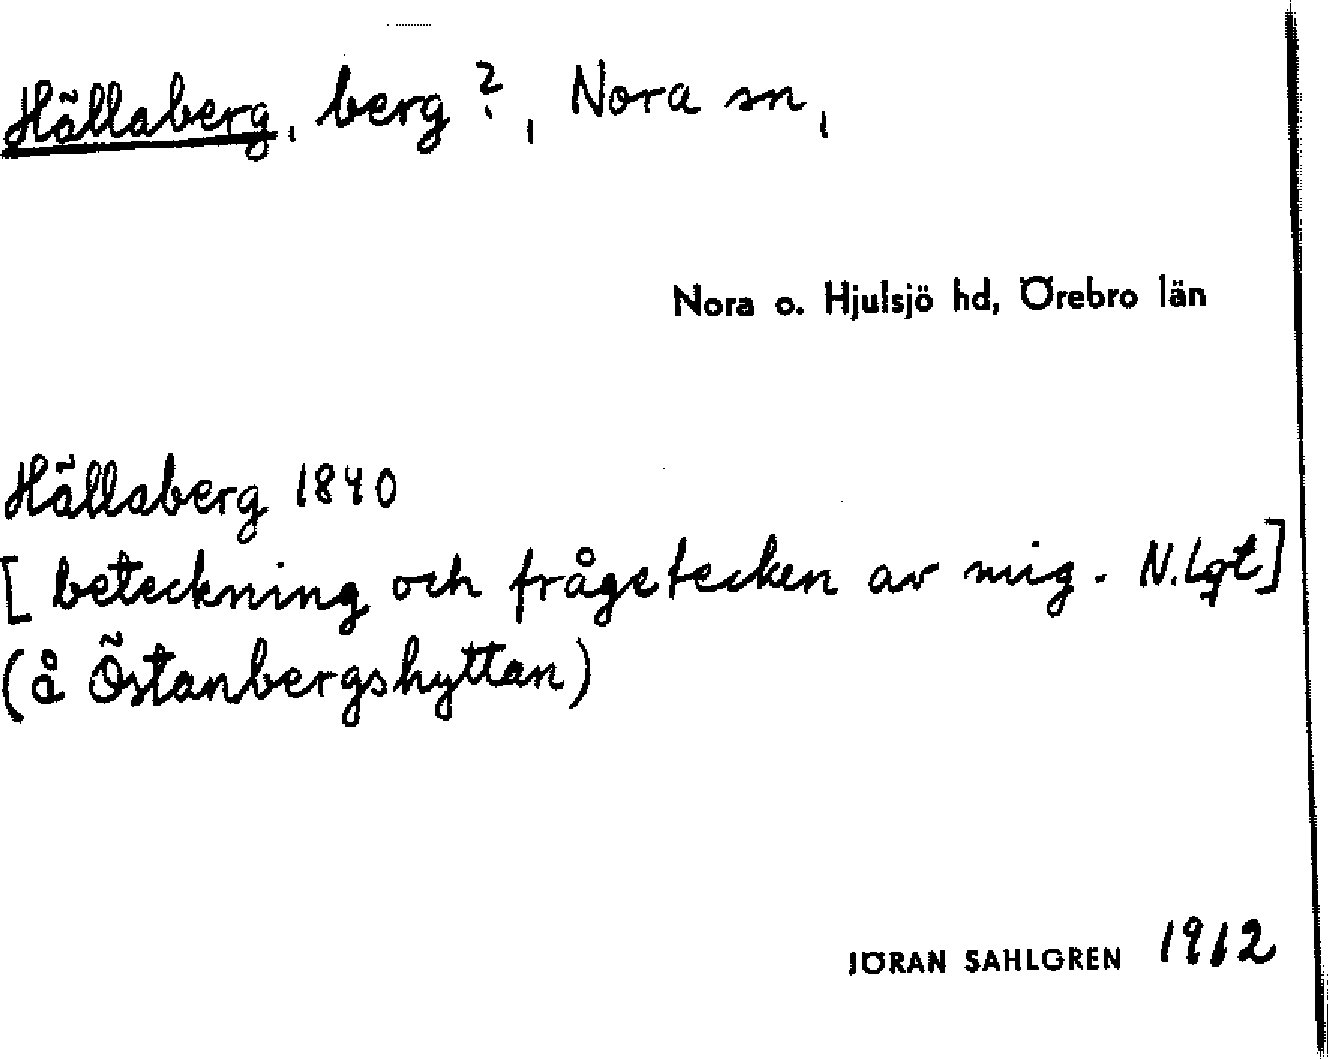 Hällaberg, berg?, Nora sn,
Nora o. Hjulsjö hd, Örebro län
Hällaberg 1840
[beteckning och frågetecken av mig. N. Lqt]
(å Östanbergshyttan)
JÖRAN SAHLGREN 1912